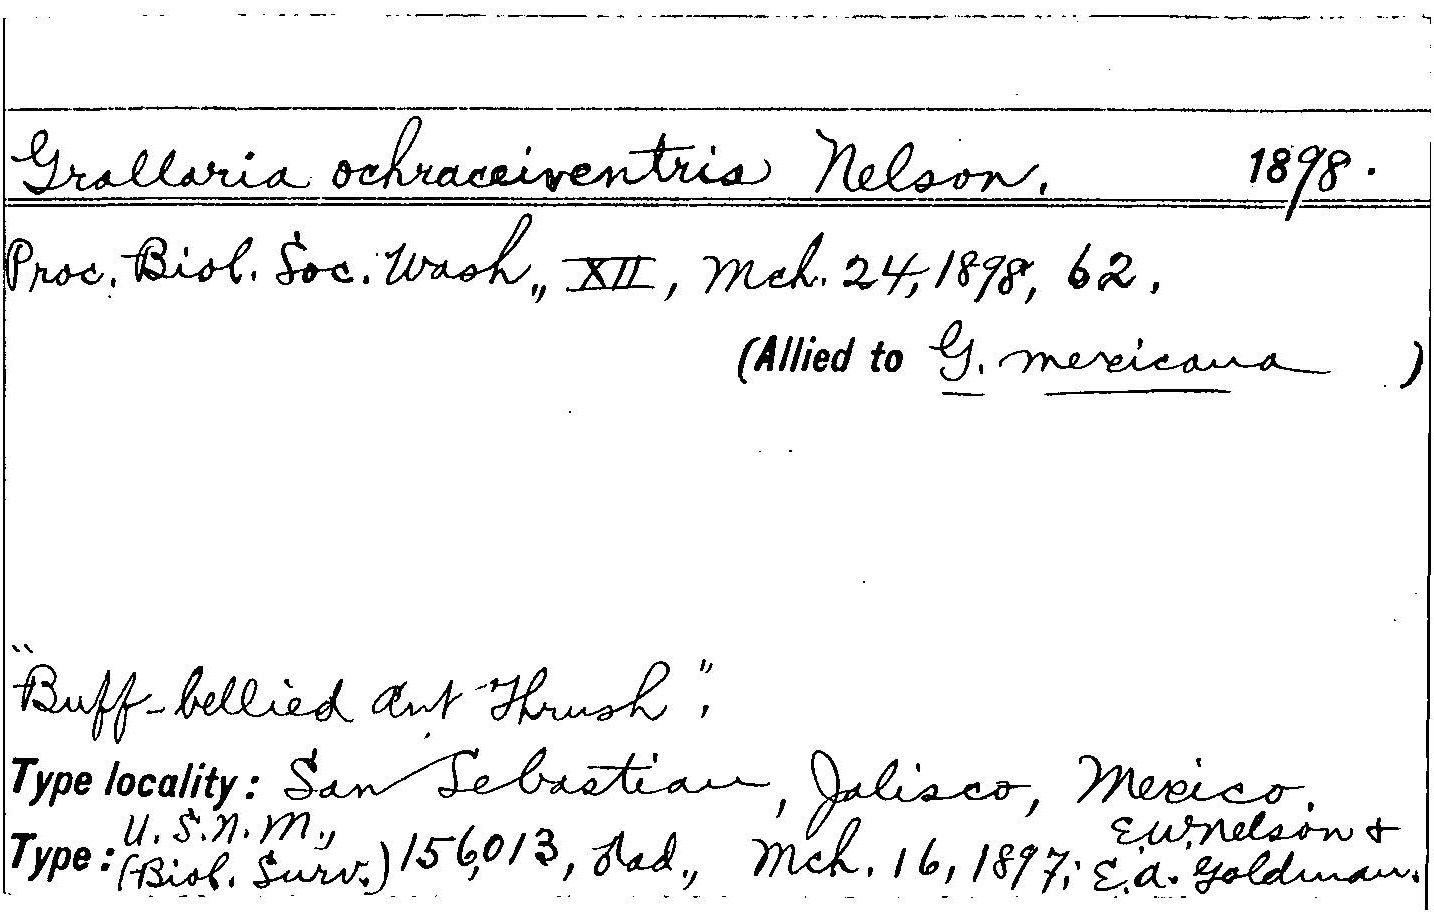 Grallaria ochraceiventris Nelson. 1898.
Proc. Biol. Soc. Wash., XII, Mch. 24, 1898, 62.
(Allied to G. mexicana )
"Buff-bellied Ant-Thrush".
Type locality: San Sebastian, Jalisco, Mexico.
U.S.N.M., E.W. Nelson &
Type: (Biol. Surv.) 156,013, ad., Mch. 16, 1897; E.A. Goldman.